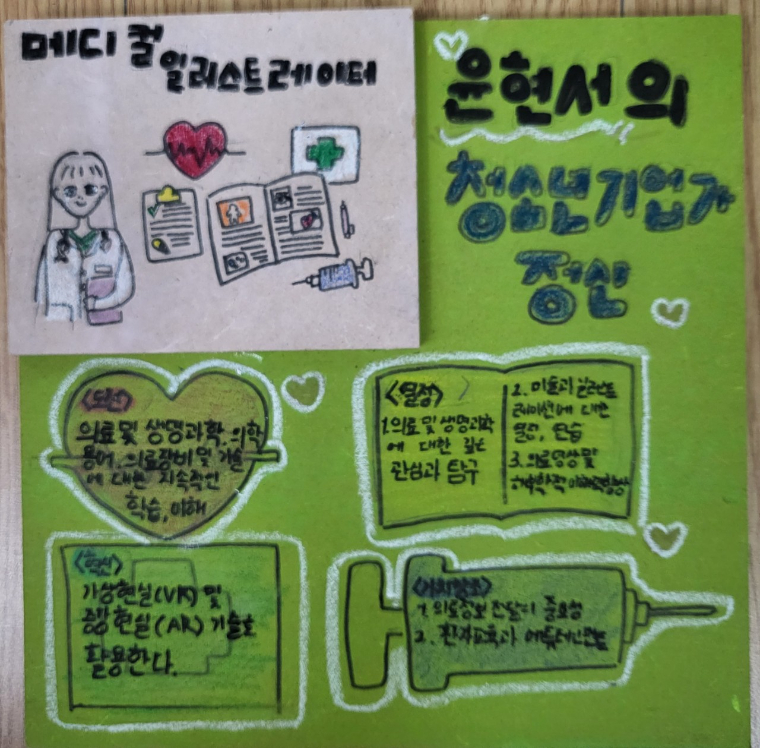 메디컬
일러스트레이터
윤현서의
청소년기업가
정신
<도전>
의료 및 생명과학, 의학
용어, 의료장비 및 기술
에 대한 지속적인
학습, 이해
<열정>
1. 의료 및 생명과학
에 대한 깊은
관심과 탐구
2. 미술과 일러스트
레이션에 대한
열정, 연습
3. 의료영상 및
해부학적
<혁신>
가상현실(VR) 및
증강현실(AR) 기술을
활용한다.
<가치창출>
1. 의료정보 전달의 중요성
2. 환자교육과